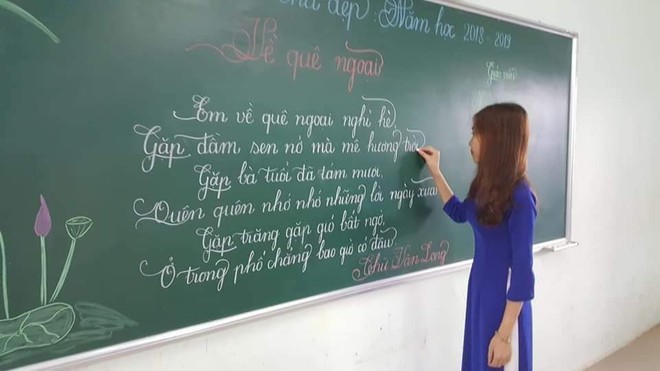 chữ đẹp: Năm học 2018-2019
Về quê ngoại
Em về quê ngoại nghỉ hè,
Gặp đầm sen nở mà mê hương trời
Gặp bà tuổi đã tám mươi,
Quên quên nhớ nhớ những lời ngày xưa
Gặp trăng gặp gió bất ngờ,
Ở trong phố chẳng bao giờ có đâu
Chử Văn Long